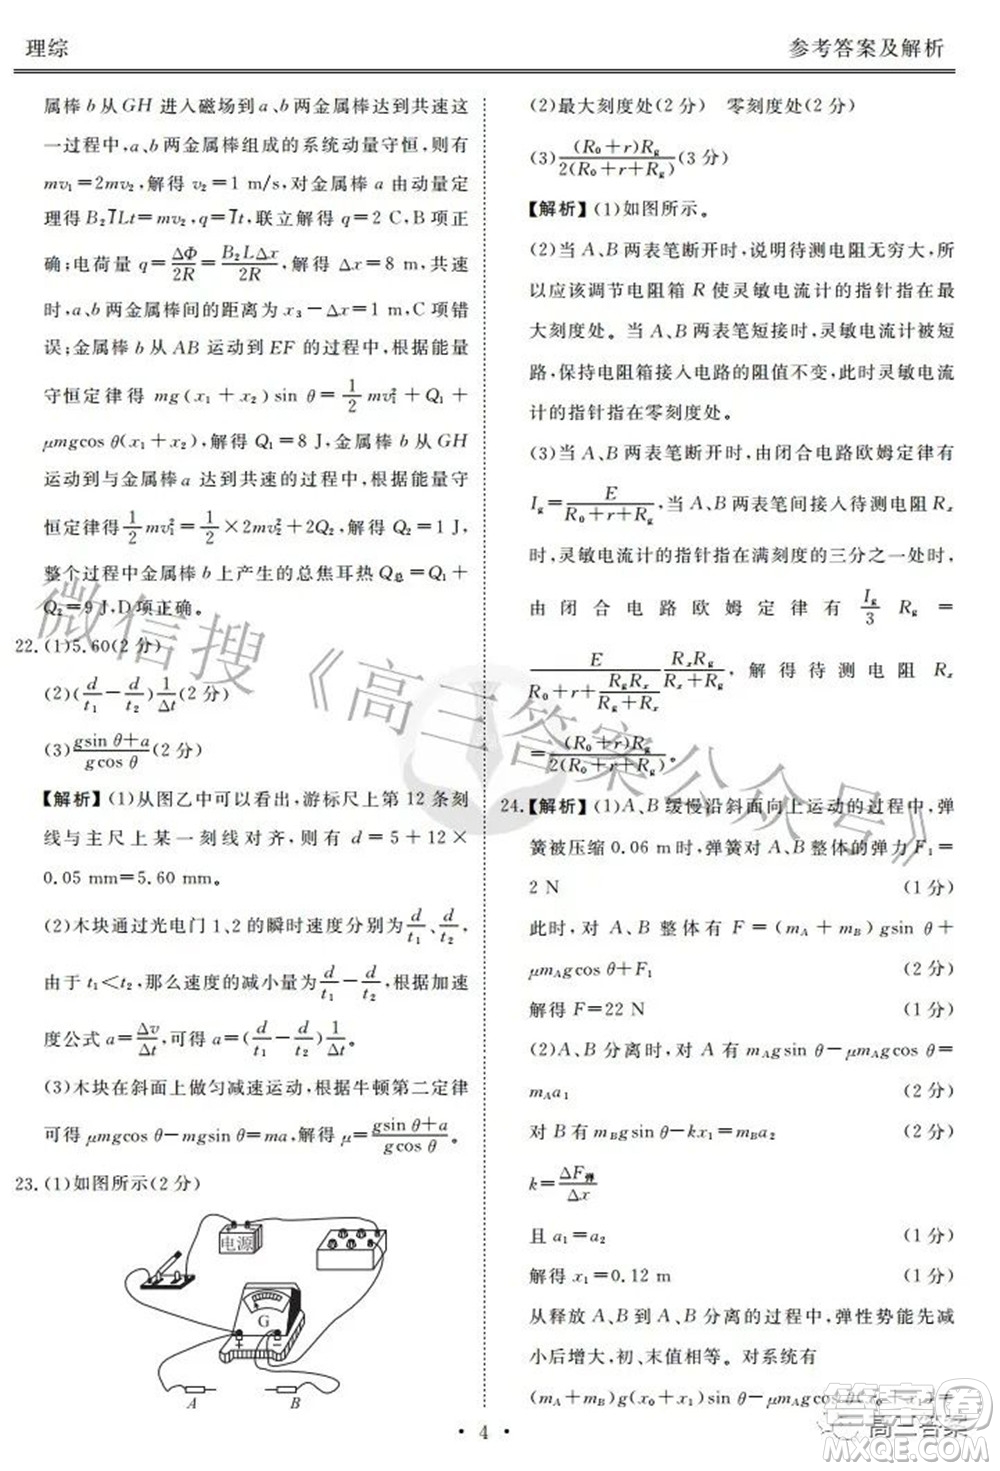 理综
参考答案及解析
属棒 b 从 GH 进入磁场到 a、b 两金属棒达到共速这
一过程中,a、b 两金属棒组成的系统动量守恒,有
mv₁=2mv₂,解得 v₂=1 m/s,对金属棒 a 由动量定
理得 B₂I̅Lt=mv₂,q=I̅t,联立解得 q=2 C,B 项正
确;电荷量 q=ΔΦ/2R=B₂LΔx/2R,解得 Δx=8 m,共速
时,a、b 两金属棒间的距离为 x₃-Δx=1 m,C 项错
误;金属棒 b 从 AB 运动到 EF 的过程中,根据能量
守恒定律得 mg(x₁+x₂)sin θ=1/2 mv₁²+Q₁+
μmgcos θ(x₁+x₂),解得 Q₁=8 J,金属棒 b 从 GH
运动到与金属棒 a 达到共速的过程中,根据能量守
恒定律得 1/2 mv₁²=1/2×2mv₂²+2Q₂,解得 Q₂=1 J,
整个过程中金属棒 b 上产生的总焦耳热 Q总=Q₁+
Q₂=9 J,D 项正确。
22.(1)5.60(2 分)
(2)(d/t₁-d/t₂)1/Δt(2 分)
(3)(gsin θ+a)/(gcos θ)(2 分)
【解析】(1)从图乙中可以看出,游标尺上第 12 条刻
线与主尺上某一刻线对齐,则有 d=5+12×
0.05 mm=5.60 mm。
(2)木块通过光电门 1、2 的瞬时速度分别为 d/t₁、d/t₂,
由于 t₁<t₂,那么速度的减小量为 d/t₁-d/t₂,根据加速
度公式 a=Δv/Δt,可得 a=(d/t₁-d/t₂)1/Δt。
(3)木块在斜面上做匀减速运动,根据牛顿第二定律
可得 μmgcos θ-mgsin θ=ma,解得 μ=(gsin θ+a)/(gcos θ)。
23.(1)如图所示(2 分)
电源
G
A
B
(2)最大刻度处(2 分) 零刻度处(2 分)
(3)(R₀+r)Rg/2(R₀+r+Rg)(3 分)
【解析】(1)如图所示。
(2)当 A、B 两表笔断开时,说明待测电阻无穷大,所
以应该调节电阻箱 R 使灵敏电流计的指针指在最
大刻度处。当 A、B 两表笔短接时,灵敏电流计被短
路,保持电阻箱接入电路的阻值不变,此时灵敏电流
计的指针指在零刻度处。
(3)当 A、B 两表笔断开时,由闭合电路欧姆定律有
Ig=E/(R₀+r+Rg),当 A、B 两表笔间接入待测电阻 Rx
时,灵敏电流计的指针指在满刻度的三分之一处,
由闭合电路欧姆定律有 Ig/3 Rg=
E/(R₀+r+RgRx/(Rg+Rx)) · RxRg/(Rx+Rg),解得待测电阻 Rx
=(R₀+r)Rg/2(R₀+r+Rg)。
24.【解析】(1)A、B 缓慢沿斜面向上运动的过程中,弹
簧被压缩 0.06 m 时,弹簧对 A、B 整体的弹力 F₁=
2 N (1 分)
此时,对 A、B 整体有 F=(mA+mB)gsin θ+
μmAgcos θ+F₁ (2 分)
解得 F=22 N (1 分)
(2)A、B 分离时,对 A 有 mAgsin θ-μmAgcos θ=
mAa₁ (2 分)
对 B 有 mBgsin θ-kx₁=mBa₂ (2 分)
k=ΔF弹/Δx
且 a₁=a₂ (1 分)
解得 x₁=0.12 m (1 分)
从释放 A、B 到 A、B 分离的过程中,弹性势能先减
小后增大,初、末值相等。对系统有
(mA+mB)g(x₀+x₁)sin θ-μmAgcos θ(x₀+x₁)=
· 4 ·
微信搜《高三答案公众号》
高三答案
答案圈
MXQE.COM